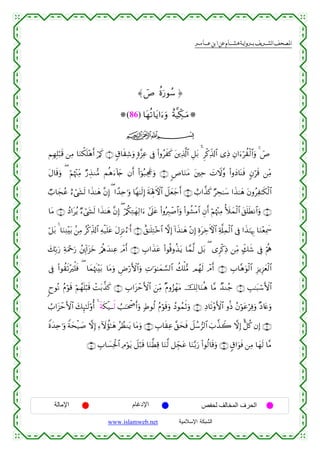 المصحف الشريف برواية هشام عن ابن عامر
﴿ سُورَةُ صٓ ﴾
*مَكِّيَّةٌ وَءَايَاتُهَا (86)*
بسم الله الرحمن الرحيم
صٓۚ وَٱلْقُرْءَانِ ذِى ٱلذِّكْرِ ۝ بَلِ ٱلَّذِينَ كَفَرُوا۟ فِى عِزَّةٍ وَشِقَاقٍ ۝ كَمْ أَهْلَكْنَا مِن قَبْلِهِم
مِّن قَرْنٍ فَنَادَوا۟ وَّلَاتَ حِينَ مَنَاصٍ ۝ وَعَجِبُوٓا۟ أَن جَآءَهُم مُّنذِرٌ مِّنْهُمْ ۖ وَقَالَ
ٱلْكَٰفِرُونَ هَٰذَا سَٰحِرٌ كَذَّابٌ ۝ أَجَعَلَ ٱلْءَالِهَةَ إِلَٰهًا وَٰحِدًا ۖ إِنَّ هَٰذَا لَشَىْءٌ عُجَابٌ ۝
وَٱنطَلَقَ ٱلْمَلَأُ مِنْهُمْ أَنُ ٱمْشُوا۟ وَٱصْبِرُوا۟ عَلَىٰٓ ءَالِهَتِكُمْ ۖ إِنَّ هَٰذَا لَشَىْءٌ يُرَادُ ۝ مَا
سَمِعْنَا بِهَٰذَا فِى ٱلْمِلَّةِ ٱلْءَاخِرَةِ إِنْ هَٰذَآ إِلَّا ٱخْتِلَٰقٌ ۝ أَءُنزِلَ عَلَيْهِ ٱلذِّكْرُ مِنۢ بَيْنِنَا ۚ بَلْ
هُمْ فِى شَكٍّ مِّن ذِكْرِى ۖ بَل لَّمَّا يَذُوقُوا۟ عَذَابِ ۝ أَمْ عِندَهُمْ خَزَآئِنُ رَحْمَةِ رَبِّكَ
ٱلْعَزِيزِ ٱلْوَهَّابِ ۝ أَمْ لَهُم مُّلْكُ ٱلسَّمَٰوَٰتِ وَٱلْأَرْضِ وَمَا بَيْنَهُمَا ۖ فَلْيَرْتَقُوا۟ فِى
ٱلْأَسْبَٰبِ ۝ جُندٌ مَّا هُنَالِكَ مَهْزُومٌ مِّنَ ٱلْأَحْزَابِ ۝ كَذَّبَتْ قَبْلَهُمْ قَوْمُ نُوحٍ
وَعَادٌ وَفِرْعَوْنُ ذُو ٱلْأَوْتَادِ ۝ وَثَمُودُ وَقَوْمُ لُوطٍ وَأَصْحَٰبُ لَيْكَةَ ۚ أُو۟لَٰٓئِكَ ٱلْأَحْزَابُ
۝ إِن كُلٌّ إِلَّا كَذَّبَ ٱلرُّسُلَ فَحَقَّ عِقَابِ ۝ وَمَا يَنظُرُ هَٰٓؤُلَآءِ إِلَّا صَيْحَةً وَٰحِدَةً
مَّا لَهَا مِن فَوَاقٍ ۝ وَقَالُوا۟ رَبَّنَا عَجِّل لَّنَا قِطَّنَا قَبْلَ يَوْمِ ٱلْحِسَابِ ۝
الحرف المخالف لحفص الإدغام الإمالة
الشبكة الإسلامية www.islamweb.net